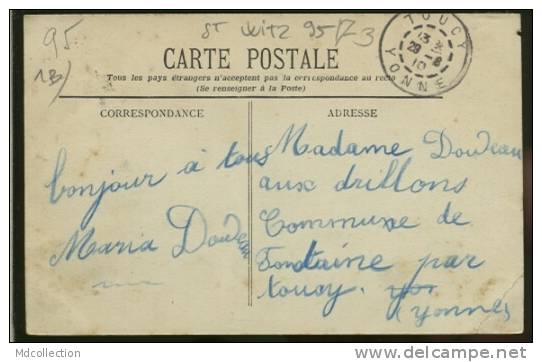 95
St Witz 95
TOUCY
13
29 - 8
10
YONNE
CARTE POSTALE
Tous les pays étrangers n'acceptent pas la correspondance au recto
(Se renseigner à la Poste)
CORRESPONDANCE
bonjour à tous
Maria Doudeau
ADRESSE
Madame Doudeau
aux drillons
Commune de
Fontaine par
toucy.
(yonne)
MDcollection
http://www.delcampe.net